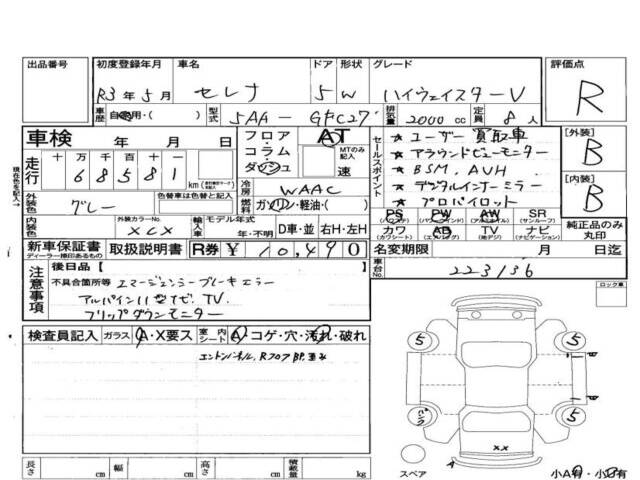 出品番号 初度登録年月 車名 ドア 形状 グレード 評価点
R3年5月 セレナ 5 W ハイウェイスターV R
車歴 自家用・( ) 型式 5AA-GFC27 排気量 2000 cc 定員 8人
車検 年 月 日 フロア・コラム・ダッシュ AT MTのみ記入 速
セールスポイント
★ユーザー買取車
★アラウンドビューモニター
★BSM, AVH
★デジタルインナーミラー
★プロパイロット
[外装] B
[内装] B
現在色を記入→
走行 十 万 千 百 十 一
68581 km
冷房 WAAC
外装色 グレー 色替車は色替と記入 燃料 ガソリン・軽油・( )
PS (パワステ) PW (パワーウィンド) AW (アルミホイル) SR (サンルーフ)
カワ (カワシート) AB (エアバッグ) TV (地デジ) ナビ (ナビゲーション)
純正品のみ丸印
内装色 外装カラーNo. XCX 輸入車 モデル年式 年・不明 D車・並 右H・左H
新車保証書 ディーラー捺印あるもの 取扱説明書 R券 ¥10,490 名変期限 月 日迄
車台No. 223136
注意事項 後日品【 】
不具合箇所等 エマージェンシーブレーキエラー
アルパイン11型ナビ.TV.
フリップダウンモニター
ロック車
検査員記入 ガラス A・X要ス 室内シート A・コゲ・穴・汚れ・破れ
エンドパネル、RフロアBP.歪み
5 5
パンク 5
XX
A
長さ cm 幅 cm 高さ cm 積載量 kg
スペア 小A有・小B有